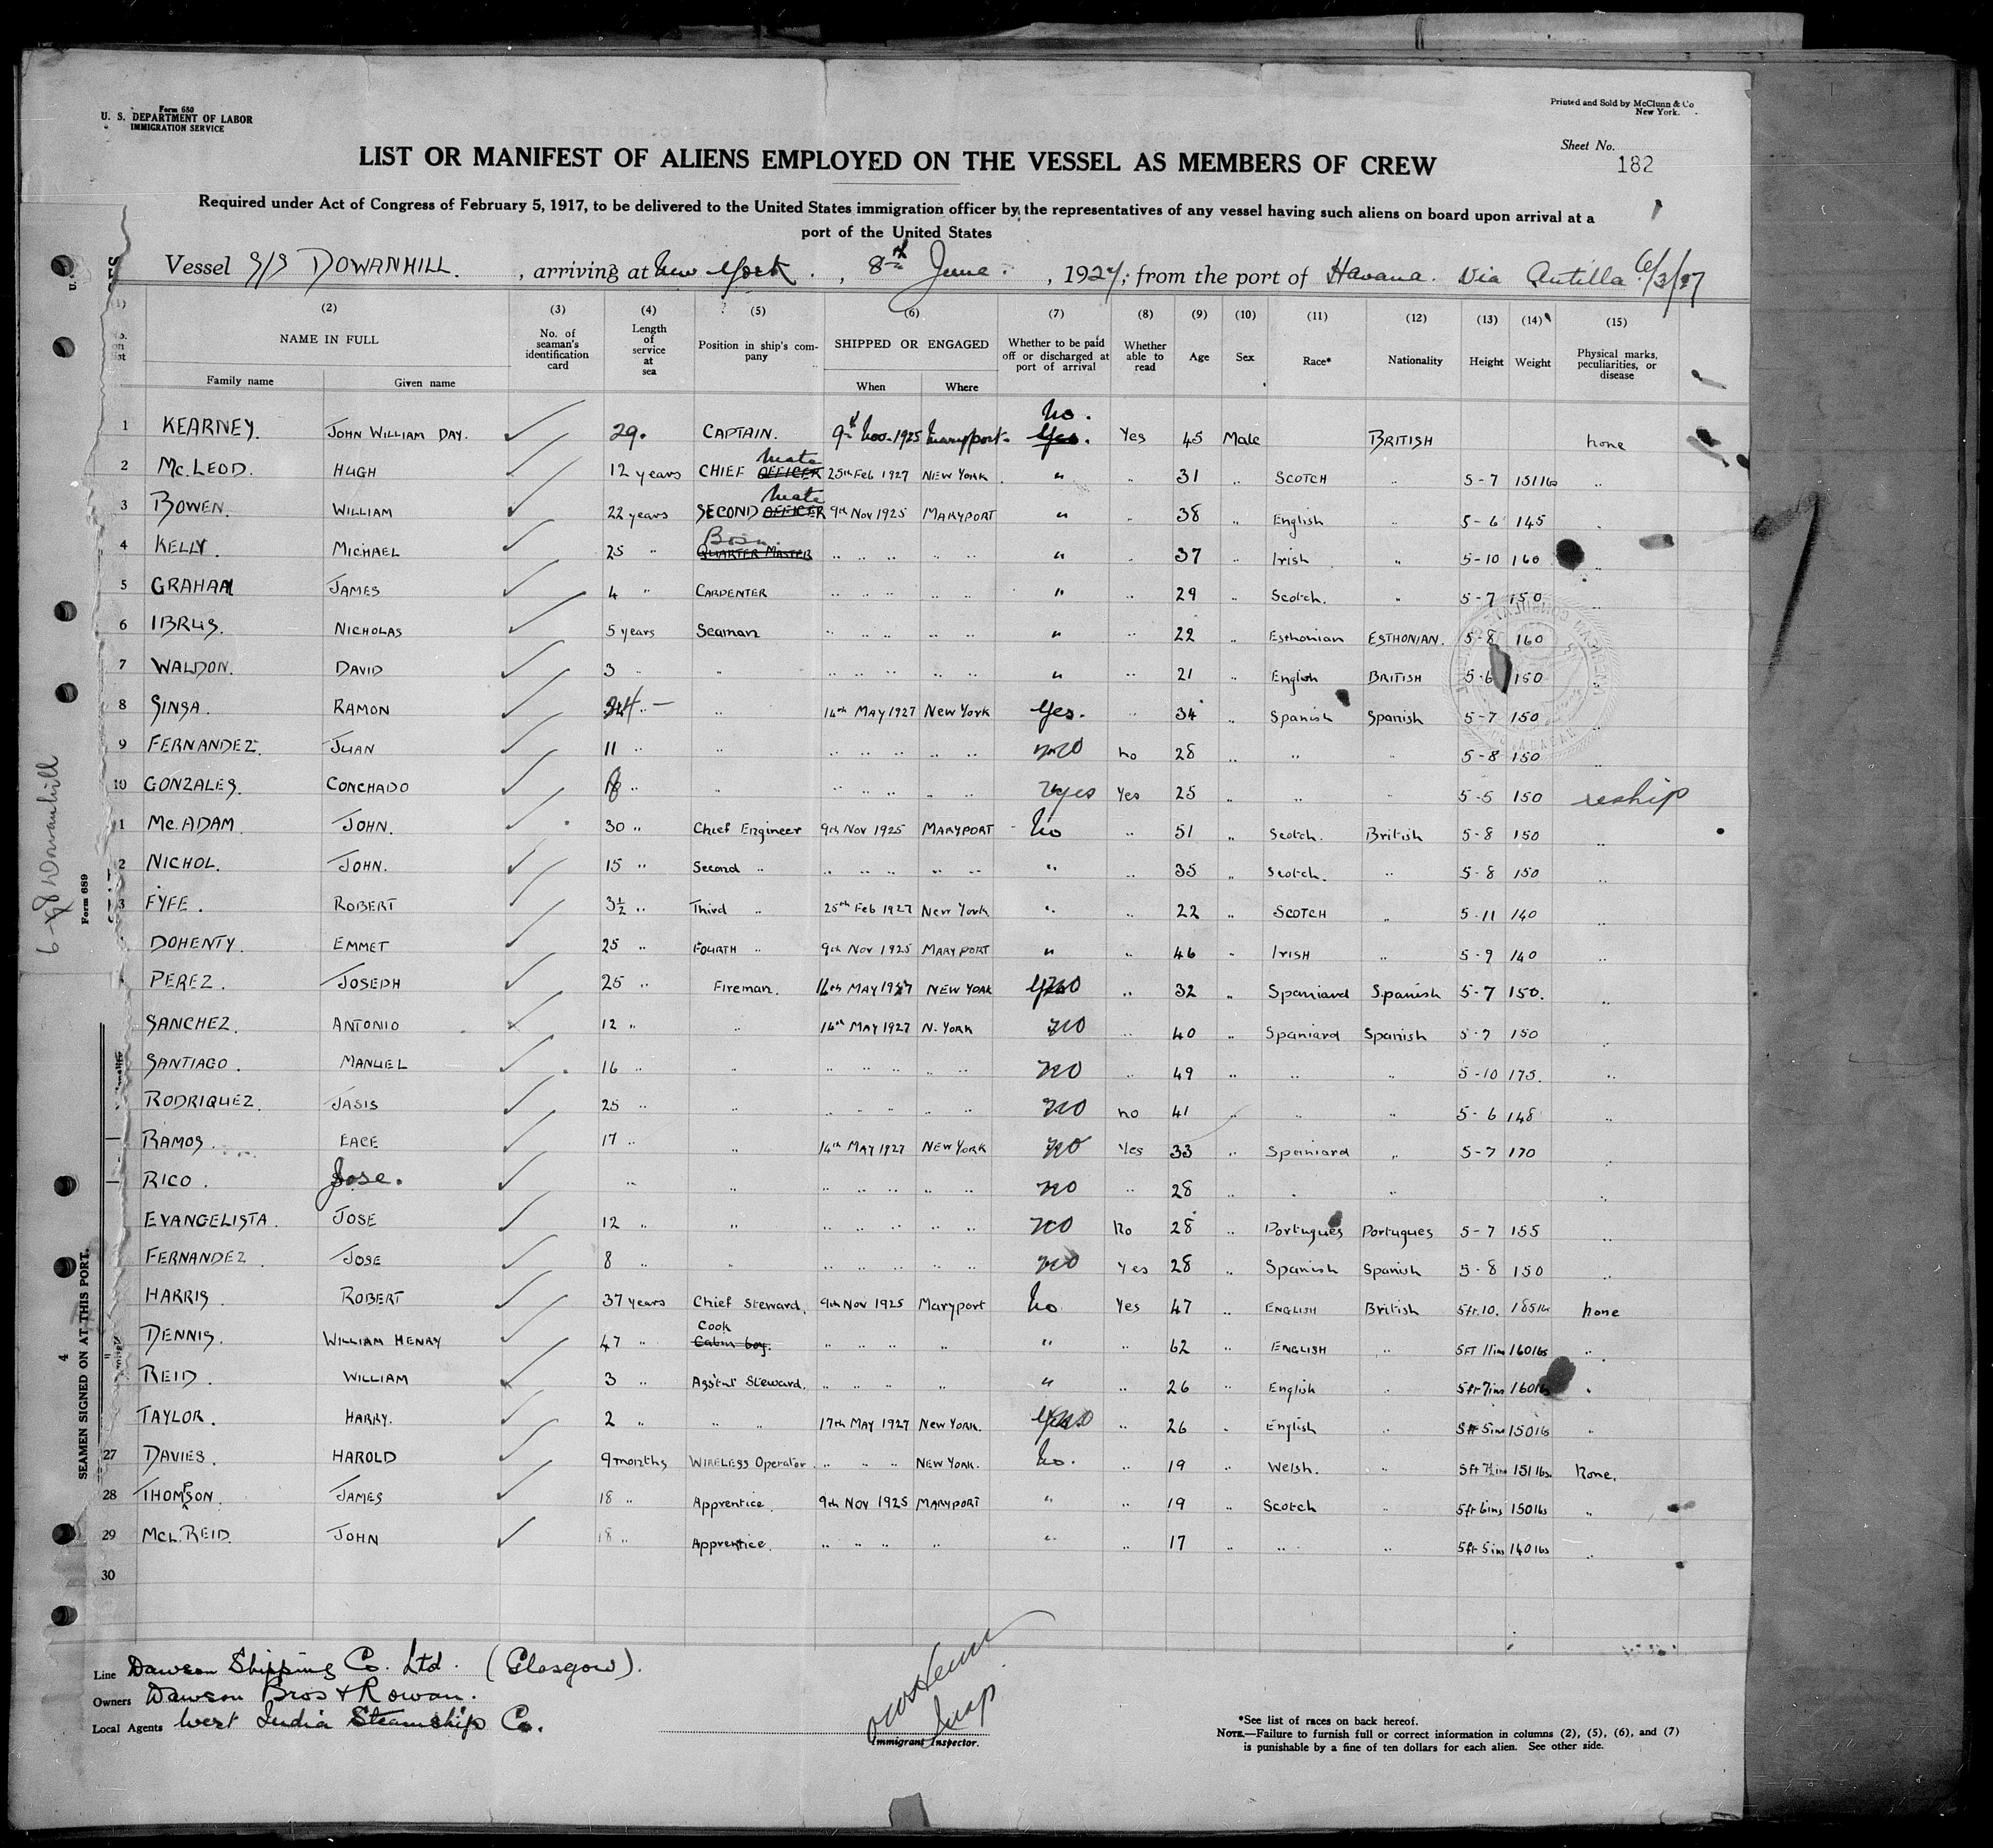 Form 680
U. S. DEPARTMENT OF LABOR
IMMIGRATION SERVICE
Printed and Sold by McClunn & Co
New York.
Sheet No.
182
LIST OR MANIFEST OF ALIENS EMPLOYED ON THE VESSEL AS MEMBERS OF CREW
Required under Act of Congress of February 5, 1917, to be delivered to the United States immigration officer by the representatives of any vessel having such aliens on board upon arrival at a
port of the United States
Vessel S/S DOWANHILL. , arriving at New York. , 8th June. , 1927; from the port of Havana. Via Antilla 6/3/27
(1) (2) (3) (4) (5) (6) (7) (8) (9) (10) (11) (12) (13) (14) (15)
No. on list NAME IN FULL Family name Given name No. of seaman's identification card Length of service at sea Position in ship's company SHIPPED OR ENGAGED When Where Whether to be paid off or discharged at port of arrival Whether able to read Age Sex Race* Nationality Height Weight Physical marks, peculiarities, or disease
1 KEARNEY. JOHN WILLIAM DAY. ✓ 29. CAPTAIN. 9th Nov. 1925 Maryport. No. Yes. Yes 45 Male BRITISH none
2 Mc. LEOD. HUGH ✓ 12 years CHIEF OFFICER Mate 25th Feb 1927 NEW YORK. " .. 31 .. SCOTCH .. 5-7 151 lbs ..
3 BOWEN. WILLIAM ✓ 22 years SECOND OFFICER Mate 9th Nov 1925 MARYPORT " .. 38 .. English .. 5-6 145 ..
4 KELLY. MICHAEL ✓ 25 .. QUARTER MASTER Bosn. .. .. .. .. .. " .. 37 .. Irish .. 5-10 160 ..
5 GRAHAM JAMES ✓ 4 .. CARPENTER .. .. .. .. .. " .. 29 .. Scotch. .. 5-7 150 ..
6 IBRUS. NICHOLAS ✓ 5 years Seaman .. .. .. .. .. " .. 22 .. Esthonian ESTHONIAN. 5-8 160
7 WALDON. DAVID ✓ 3 .. .. .. .. .. .. .. " .. 21 .. English BRITISH 5-6 150 ..
8 SINSA. RAMON ✓ .. .. 14th MAY 1927 New York Yes. .. 34 .. Spanish Spanish 5-7 150 ..
9 FERNANDEZ. JUAN ✓ 11 .. .. .. .. .. .. .. no no 28 .. .. .. 5-8 150 ..
10 GONZALES. CONCHADO ✓ .. .. .. .. .. .. .. yes Yes 25 .. .. .. 5-5 150 reship
1 Mc. ADAM. JOHN. ✓ 30 .. Chief Engineer 9th Nov 1925 MARYPORT No .. 51 .. Scotch. British 5-8 150 ..
2 NICHOL. JOHN. ✓ 15 .. Second .. .. .. .. .. .. " .. 35 .. Scotch. .. 5-8 150 ..
3 FYFE. ROBERT ✓ 3½ .. Third .. 25th Feb 1927 New York " .. 22 .. SCOTCH .. 5-11 140 ..
DOHENTY. EMMET ✓ 25 .. FOURTH .. 9th Nov 1925 MARYPORT " .. 46 .. IRISH .. 5-9 140 ..
PEREZ. JOSEPH ✓ 25 .. Fireman. 16th MAY 1927 NEW YORK no .. 32 .. Spaniard Spanish 5-7 150. ..
SANCHEZ. ANTONIO ✓ 12 .. .. 14th MAY 1927 N. YORK no .. 40 .. Spaniard Spanish 5-7 150 ..
SANTIAGO. MANUEL ✓ 16 .. .. .. .. .. .. .. no .. 49 .. .. .. 5-10 175. ..
RODRIQUEZ. JASIS ✓ 25 .. .. .. .. .. .. .. no no 41 .. .. .. 5-6 148 ..
RAMOS. EACE ✓ 17 .. .. 14th MAY 1927 NEW YORK no Yes 33 .. Spaniard .. 5-7 170 ..
RICO. Jose. ✓ .. .. .. .. .. .. .. no .. 28 .. .. .. ..
EVANGELISTA. JOSE ✓ 12 .. .. .. .. .. .. .. no No 28 .. Portugues Portugues 5-7 155 ..
FERNANDEZ. JOSE ✓ 8 .. .. .. .. .. .. .. no Yes 28 .. Spanish Spanish 5-8 150 ..
HARRIS. ROBERT ✓ 37 years Chief Steward. 9th Nov 1925 Maryport No Yes 47 .. ENGLISH British 5ft. 10. 185 lb none
DENNIS. WILLIAM HENRY ✓ 47 .. Cabin boy. Cook .. .. .. .. " .. 62 .. ENGLISH .. 5FT 11ins 160 lbs ..
REID. WILLIAM ✓ 3 .. Asstnt Steward. .. .. .. .. " .. 26 .. English .. 5ft 7ins 160 lbs ..
TAYLOR. HARRY. ✓ 2 .. .. .. 17th MAY 1927 New York. no .. 26 .. English .. 5ft 5ins 150 lbs ..
27 DAVIES. HAROLD ✓ 9 months WIRELESS Operator. .. .. .. NEW YORK. No. .. 19 .. Welsh. .. 5ft 7½ins 151 lbs. None.
28 THOMPSON. JAMES ✓ 18 .. Apprentice. 9th Nov 1925 MARYPORT " .. 19 .. Scotch .. 5ft 6ins 150 lbs ..
29 MCL. REID. JOHN ✓ 18 .. Apprentice. .. .. .. .. " .. 17 .. .. .. 5ft 5ins 140 lbs ..
30
Line Dawson Shipping Co. Ltd. (Glasgow).
Owners Dawson Bros & Rowan.
Local Agents West India Steamship Co.
Insp
Immigrant Inspector.
*See list of races on back hereof.
NOTE.—Failure to furnish full or correct information in columns (2), (5), (6), and (7)
is punishable by a fine of ten dollars for each alien. See other side.
Dowanhill
Form 689
SEAMEN SIGNED ON AT THIS PORT.
4